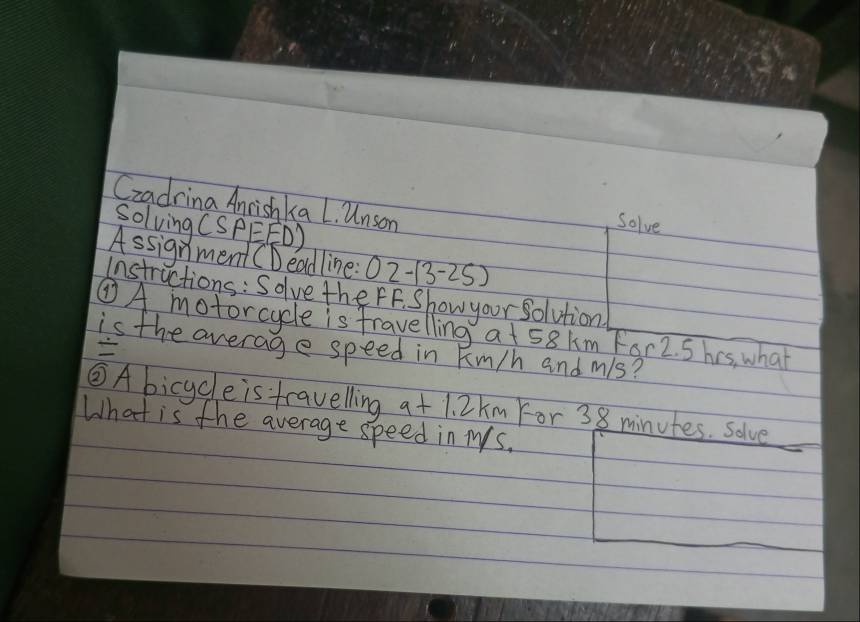 Czadrina Anrishka L. Unson
Solving (SPEED)
Assignment (Deadline: 02-13-25)
Instructions: Solve the FF. Show your Solution.
Solve
① A motorcycle is travelling at 58 km For 2.5 hrs, what
is the average speed in km/h and m/s?
② A bicycle is travelling at 1.2 km For 38 minutes. Solve
What is the average speed in m/s.